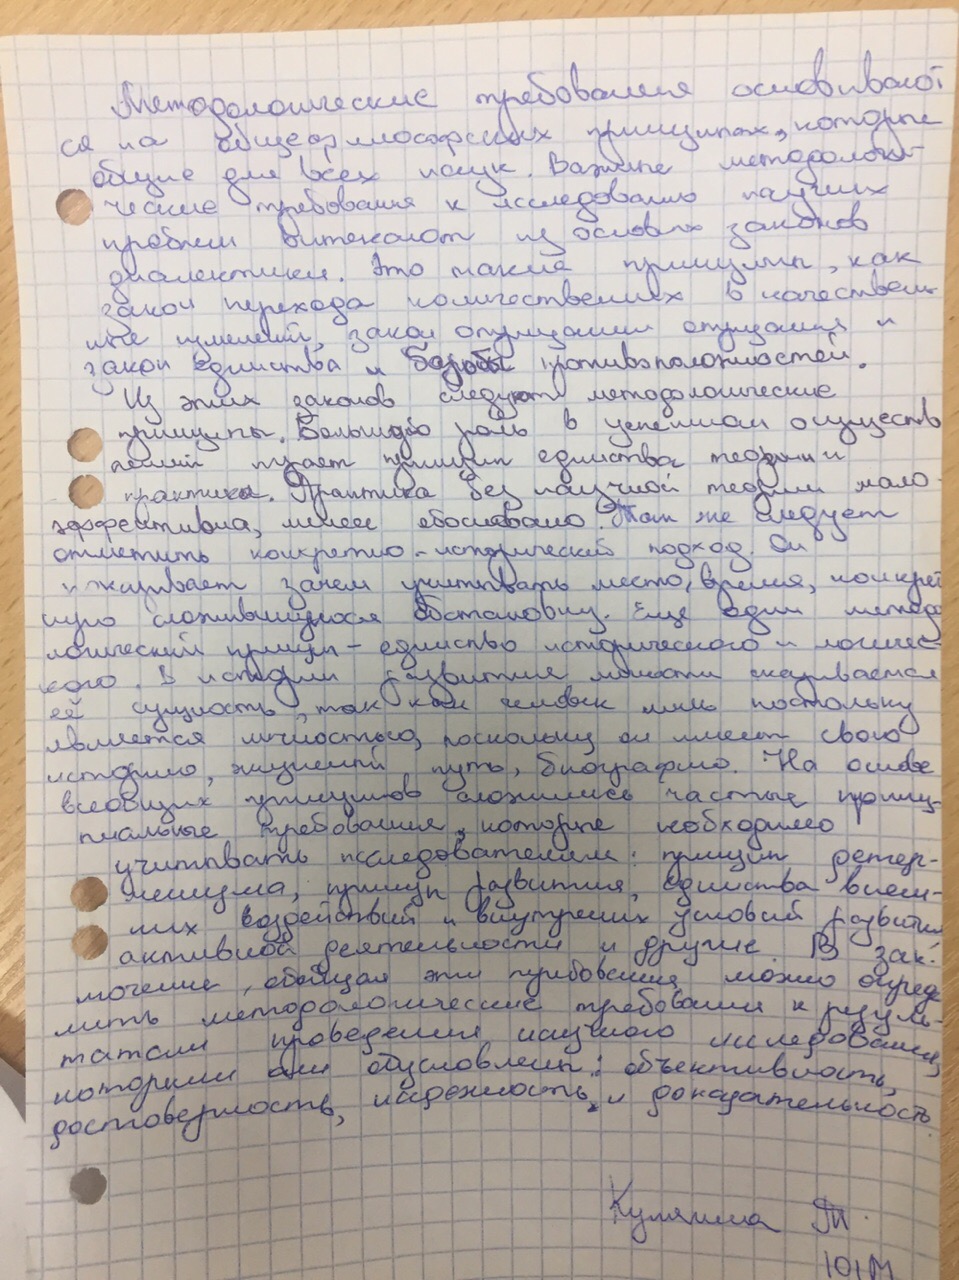 Методологические требования основивают
ся на общефилософских принципах, которые
общие для всех наук. Важные методологи-
ческие требования к исследованию научных
проблем витекают из основных законов
диалектики. Это такие принципы, как
закон перехода количественных в качествен-
ные изменений, закон отрицании отрицания и
закон единства и борьбы противоположностей.
Из этих законов следуют методологические
принципы. Большую роль в успешном осуществ
лении играет принцип единства теории и
практики. Практика без научной теории мало-
эффективна, менее обоснованно. Так же следует
отметить конкретно-исторический подход. Он
указывает зачем учитывать место, время, конкрет
ную сложившуюся обстановку. Еще один методо
логический принцип - единство исторического и логичес-
кого. В истории развития личности сказывается
её сущность, так как человек лишь постольку
является личностью, поскольку он имеет свою
историю, жизненный путь, биографию. На основе
всеобщих принципов сложились частные принци-
пиальные требования, которые необходимо
учитывать исследователем: принцип детер-
минизма, принцип развития, единства внеш-
них воздействий и внутренних условий развития
активной деятельности и другие. В зак-
лючение, обобщая эти требования, можно опреде
лить методологические требования к резуль-
татам проведения научного исследования,
которыми они обусловлены: объективность,
достоверность, надежность, и доказательность.
101М